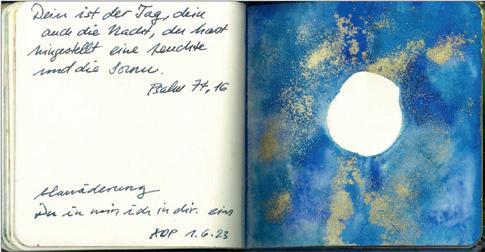 Dein ist der Tag, dein
auch die Nacht, du hast
hingestellt eine Leuchte
und die Sonne.
Psalm 74,16
Du in mir ich in dir. eins
1.6.23